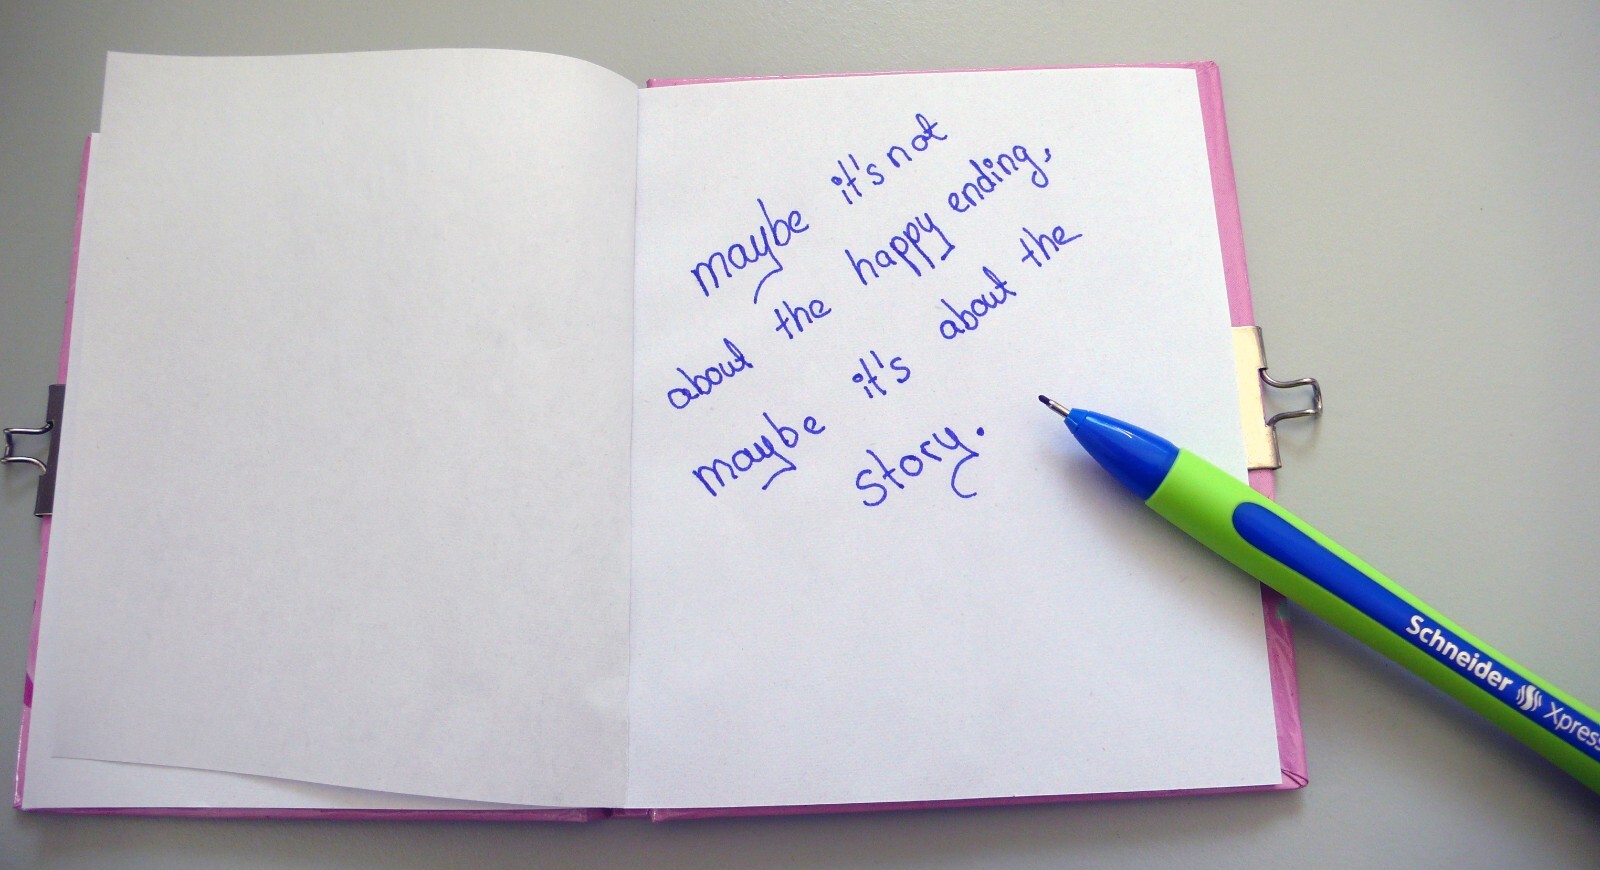 maybe it's not
about the happy ending,
maybe it's about the
story.
Schneider Xpress